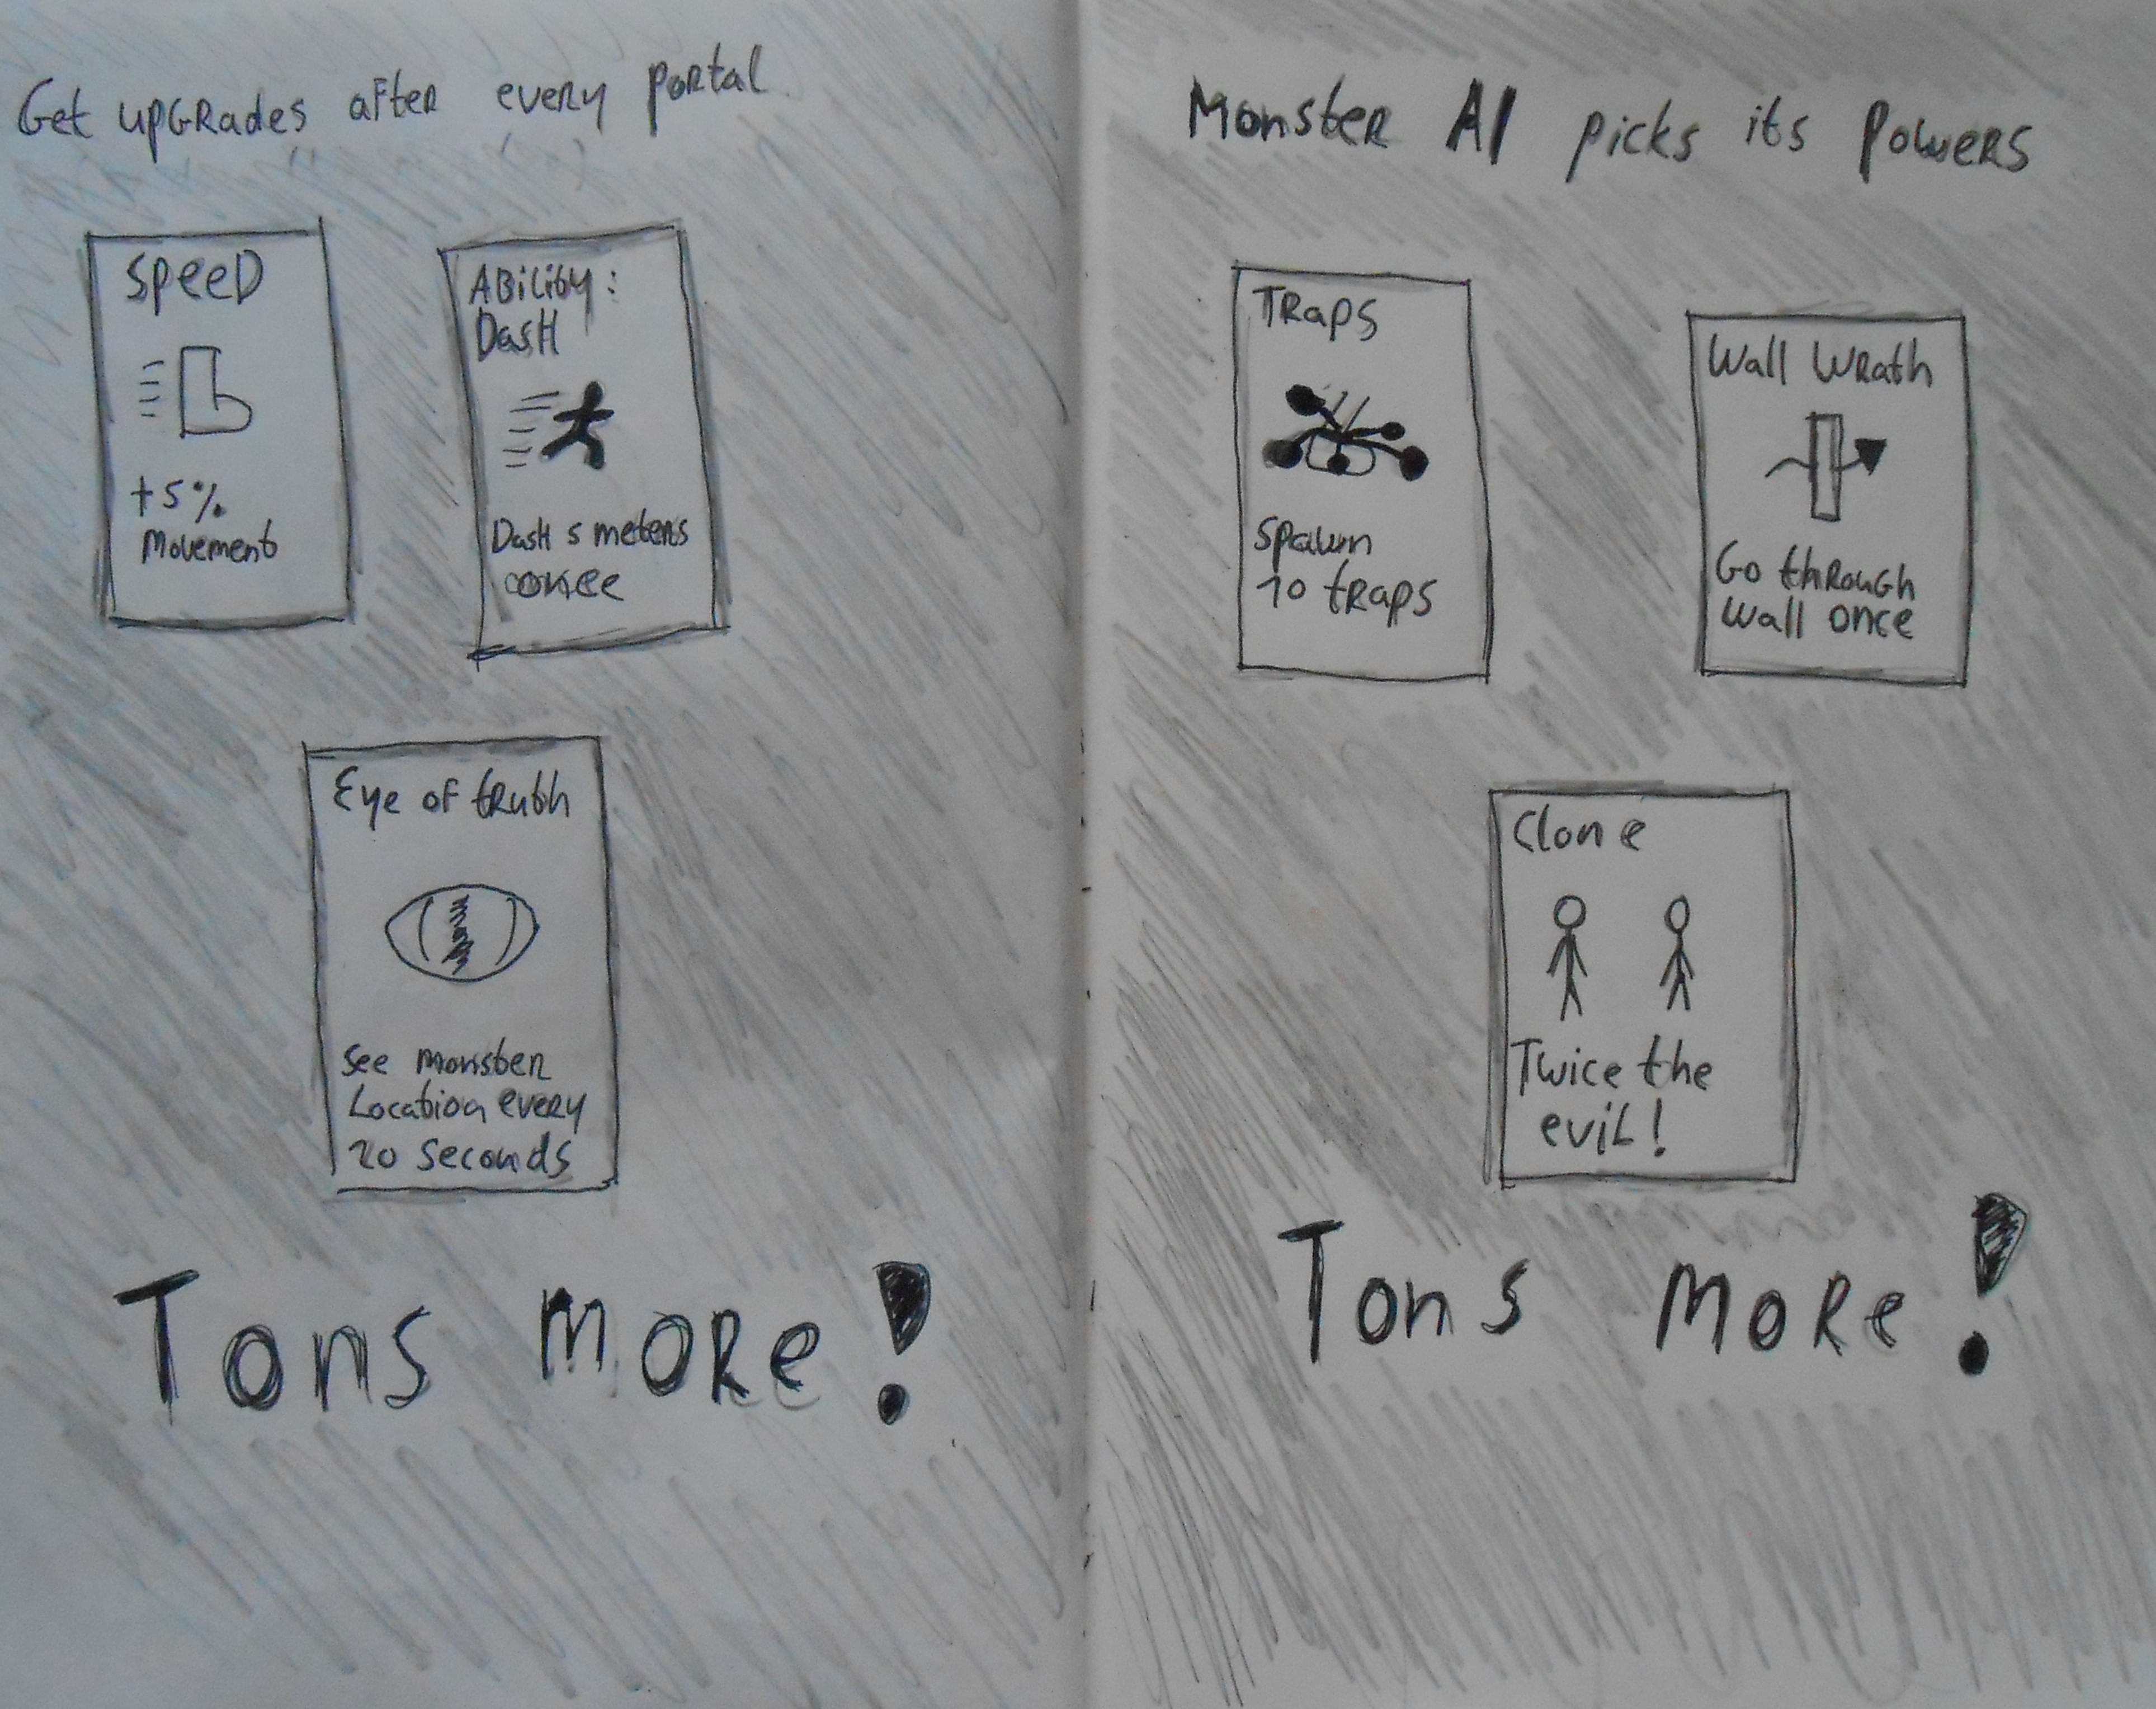 Get upGRades after every portal
SpeeD
+5%
Movement
ABility:
DasH
DasH 5 meters
once
Eye of truth
See monster
Location every
20 seconds
Tons MoRe!
Monster AI picks its Powers
TRaps
Spawn
10 tRaps
Wall WRath
Go thRouGh
Wall once
Clone
Twice the
eviL!
Tons MoRe!